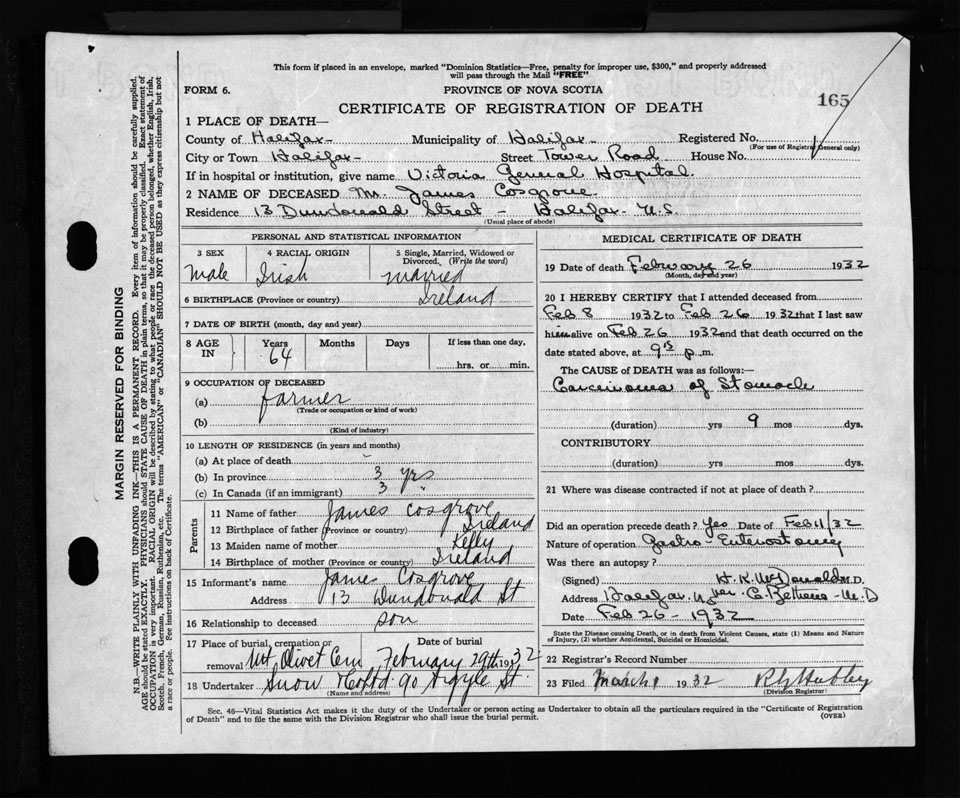 This form if placed in an envelope, marked "Dominion Statistics—Free, penalty for improper use, $300," and properly addressed
will pass through the Mail "FREE"
FORM 6.
PROVINCE OF NOVA SCOTIA
165
CERTIFICATE OF REGISTRATION OF DEATH
1 PLACE OF DEATH—
County of Halifax Municipality of Halifax Registered No.
(For use of Registrar General only)
City or Town Halifax Street Tower Road House No.
If in hospital or institution, give name Victoria General Hospital.
2 NAME OF DECEASED Mr. James Cosgrove
Residence 13 Dundonald Street - Halifax N.S.
(Usual place of abode)
PERSONAL AND STATISTICAL INFORMATION
3 SEX 4 RACIAL ORIGIN 5 Single, Married, Widowed or Divorced. (Write the word)
Male Irish Married
6 BIRTHPLACE (Province or country) Ireland
7 DATE OF BIRTH (month, day and year)
8 AGE IN Years Months Days If less than one day,
64 hrs. or min.
9 OCCUPATION OF DECEASED
(a) farmer
(Trade or occupation or kind of work)
(b)
(Kind of industry)
10 LENGTH OF RESIDENCE (in years and months)
(a) At place of death -
(b) In province 3 yrs
(c) In Canada (if an immigrant) 3 "
Parents
11 Name of father James Cosgrove
12 Birthplace of father (Province or country) Ireland
13 Maiden name of mother Kelly
14 Birthplace of mother (Province or country) Ireland
15 Informant's name James Cosgrove
Address 13 Dundonald St
16 Relationship to deceased son
17 Place of burial, cremation or removal Mt Olivet Cem Date of burial February 29th 1932
18 Undertaker Snow & Co Ltd. 90 Argyle St.
(Name and address)
MEDICAL CERTIFICATE OF DEATH
19 Date of death February 26 1932
(Month, day and year)
20 I HEREBY CERTIFY that I attended deceased from
Feb 8 1932 to Feb 26 1932 that I last saw
him alive on Feb 26 1932 and that death occurred on the
date stated above, at 9 p.m.
The CAUSE of DEATH was as follows:—
Carcinoma of Stomach
(duration) yrs 9 mos dys.
CONTRIBUTORY
(duration) yrs mos dys.
21 Where was disease contracted if not at place of death?
Did an operation precede death? Yes Date of Feb 11/32
Nature of operation Gastro-Enterostomy
Was there an autopsy?
(Signed) H. K. McDonald M.D.
Address Halifax N per G. Bethune - M.D
Date Feb 26 - 1932
State the Disease causing Death, or in death from Violent Causes, state (1) Means and Nature
of Injury, (2) whether Accidental, Suicidal or Homicidal.
22 Registrar's Record Number
23 Filed March 1 1932
(Division Registrar)
Sec. 46—Vital Statistics Act makes it the duty of the Undertaker or person acting as Undertaker to obtain all the particulars required in the "Certificate of Registration
of Death" and to file the same with the Division Registrar who shall issue the burial permit.
(OVER)
MARGIN RESERVED FOR BINDING
N.B.—WRITE PLAINLY WITH UNFADING INK—THIS IS A PERMANENT RECORD. Every item of information should be carefully supplied.
AGE should be stated EXACTLY. PHYSICIANS should STATE CAUSE OF DEATH in plain terms, so that it may be properly classified. Exact statement of
OCCUPATION is very important. RACIAL ORIGIN will be described by stating to what people or race the deceased person belonged, whether English, Irish,
Scotch, French, German, Russian, Ruthenian, etc. The terms "AMERICAN" or "CANADIAN" SHOULD NOT BE USED as they express citizenship but not
a race or people. See instructions on back of Certificate.